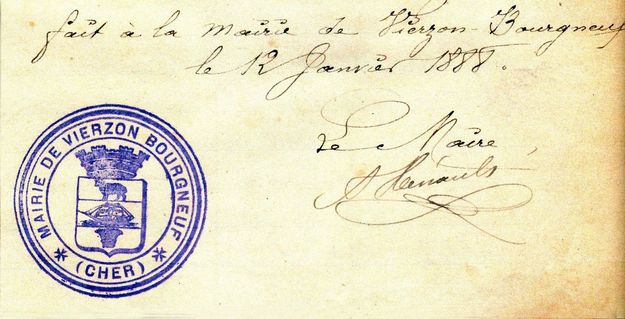 fait à la Mairie de Vierzon-Bourgneuf
le 12 Janvier 1888.
Le Maire,
A Henault
MAIRIE DE VIERZON BOURGNEUF
(CHER)